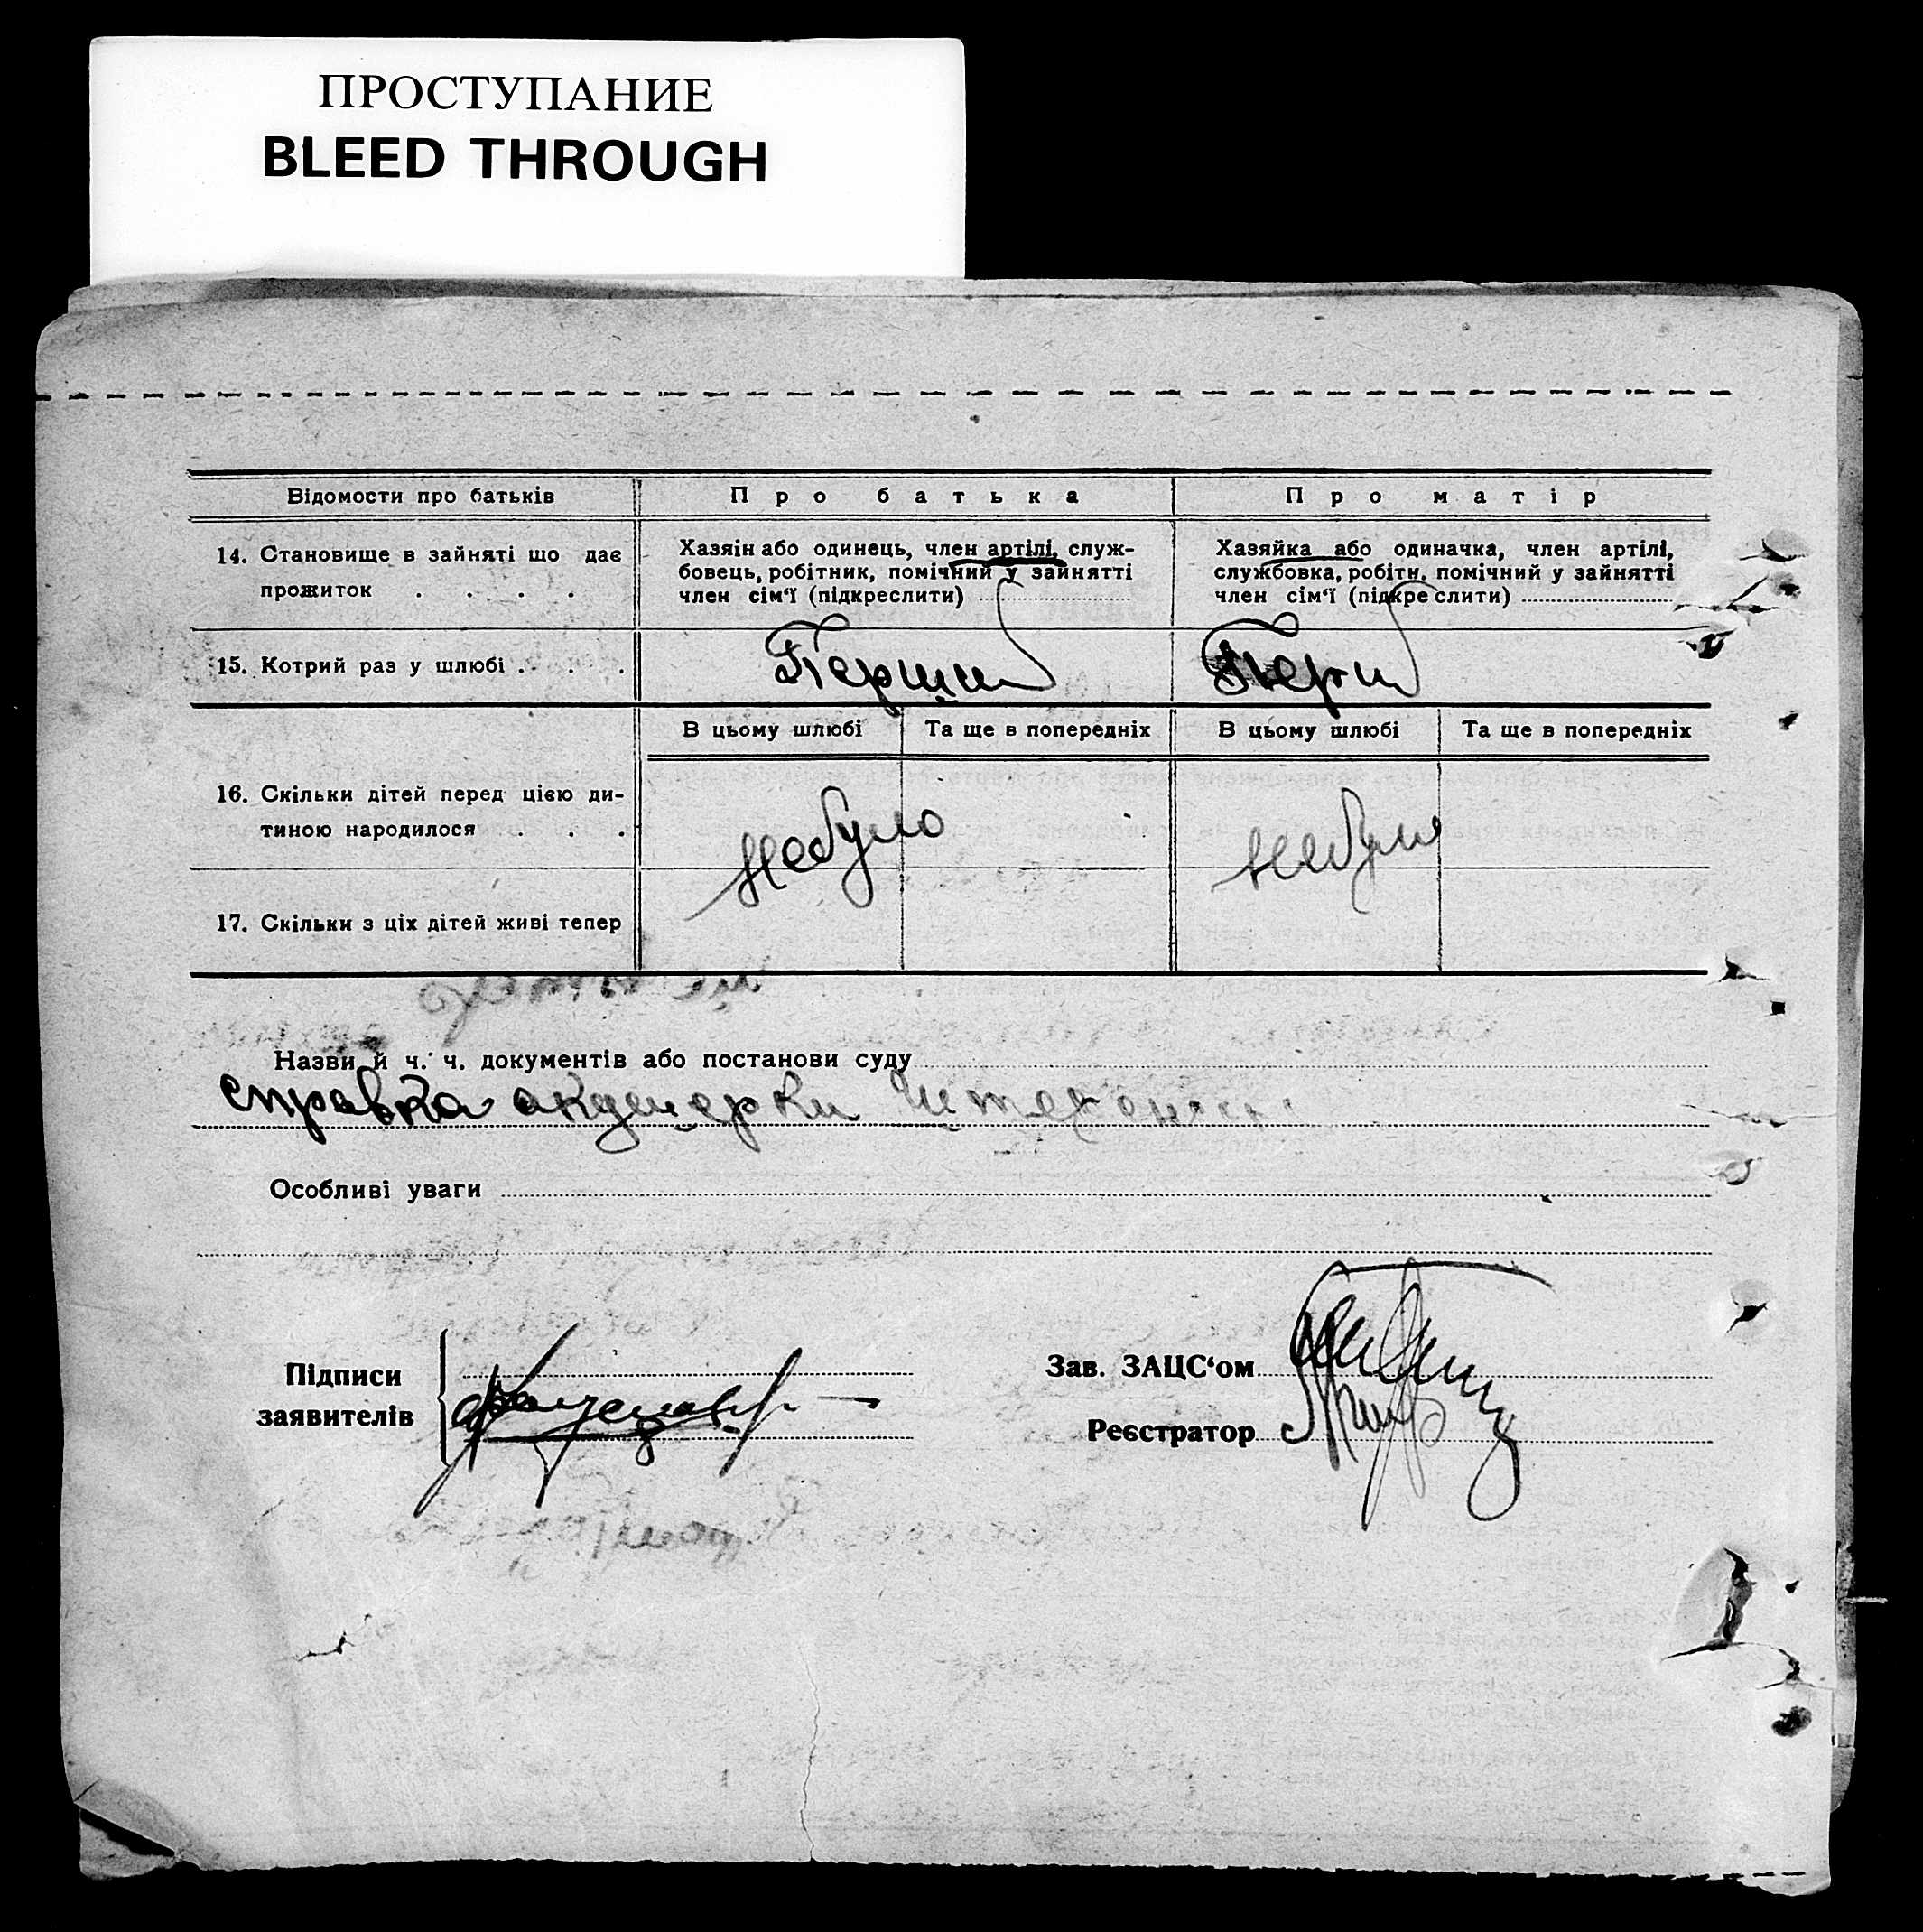 ПРОСТУПАНИЕ
BLEED THROUGH
Відомости про батьків
Про батька
Про матір
14. Становище в зайняті що дає
прожиток . . . .
Хазяїн або одинець, член артілі, служ-
бовець, робітник, помічний у зайнятті
член сім‘ї (підкреслити)
Хазяйка або одиначка, член артілі,
службовка, робітн. помічний у зайнятті
член сім‘ї (підкреслити)
15. Котрий раз у шлюбі . . .
Перший
Перш
В цьому шлюбі
Та ще в попередніх
В цьому шлюбі
Та ще в попередніх
16. Скільки дітей перед цією ди-
тиною народилося . . .
небуло
небуло
17. Скільки з ціх дітей живі тепер
Назви й ч. ч. документів або постанови суду
справка акушерки
Особливі уваги
Підписи
заявителів
Зав. ЗАЦС‘ом
Реєстратор